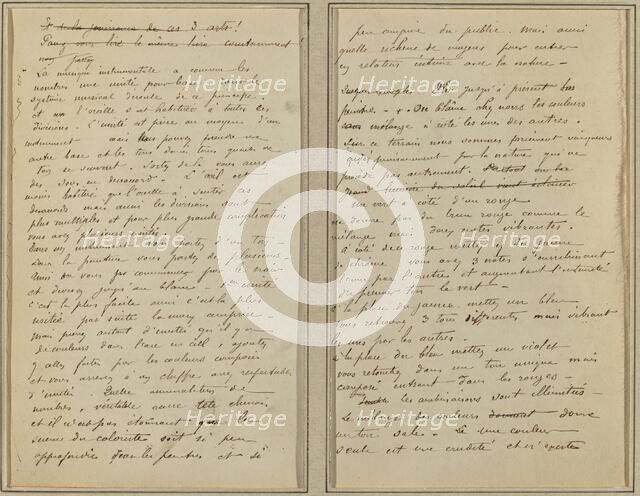 Et de la jouissance de ces 3 arts!
Pouvez vous lire le même livre constamment!
vous partez
La musique instrumentale a comme les
nombres une unité pour base. Tout le
système musical découle de ce principe.
et l'oreille s'est habituée à toutes ces
divisions. L'unité est prise au moyen d'un
instrument mais vous pouvez prendre une
autre base et les tons demi tons quarts de
ton se suivront. Sortis de là vous aurez
des sons en désaccord. L'œil est
moins habitué que l'oreille à sentir ces
désaccords mais aussi les divisions sont
plus multiples et pour plus grande complication
vous avez plusieurs unités.
Dans un instrument vous partez d'un ton
Dans la peinture vous partez de plusieurs.
Ainsi vous commencez par le noir
et divisez jusqu'au blanc - 1re unité
c'est la plus facile aussi c'est la plus
usitée par suite la mieux comprise.
mais prenez autant d'unités qu'il y a
de couleurs dans l'arc en ciel, ajoutez
y celles faites par les couleurs composées
et vous arrivez à un chiffre assez respectable
d'unités. Quelle accumulation de
nombres, véritable casse tête chinois
et il n'est pas étonnant que la
science du coloriste soit si peu
approfondie par les peintres et si
peu comprise du public. Mais aussi
quelle richesse de moyens pour entrer
en relation intime avec la nature -
On blâme chez nous les couleurs
sans mélange à côté les unes des autres.
Sur ce terrain nous sommes forcément vainqueurs
aidés puissamment par la nature qui ne
procède pas autrement.
un vert à côté d'un rouge
ne donne pas du brun rouge comme le
mélange mais deux notes vibrantes.
à côté de ce rouge mettez du jaune
de chrome vous avez 3 notes s'enrichissant
l'une par l'autre et augmentant l'intensité
du premier ton le vert -
à la place du jaune mettez un bleu
vous retrouvez 3 tons différents mais vibrant
les uns par les autres.
à la place du bleu mettez un violet
vous retombez dans un ton unique mais
composé entrant dans les rouges -
les combinaisons sont illimitées -
Le mélange des couleurs donne
un ton sale. Une couleur
seule est une crudité et n'existe
Heritage Images
Heritage Images
Heritage Images
Heritage Images
Heritage Images
C